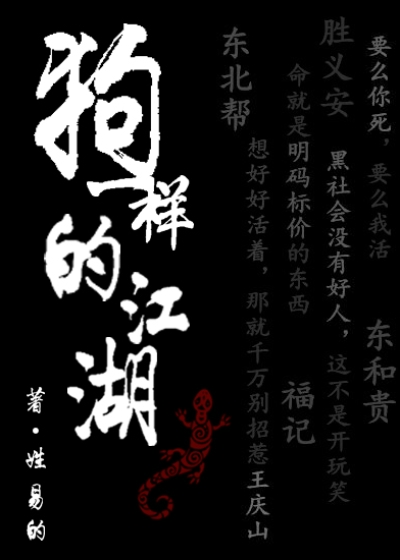 狗一样的江湖
著·姓易的
要么你死，要么我活
东和贵
胜义安
黑社会没有好人，这不是开玩笑
命就是明码标价的东西
福记
东北帮
想好好活着，那就千万别招惹王庆山